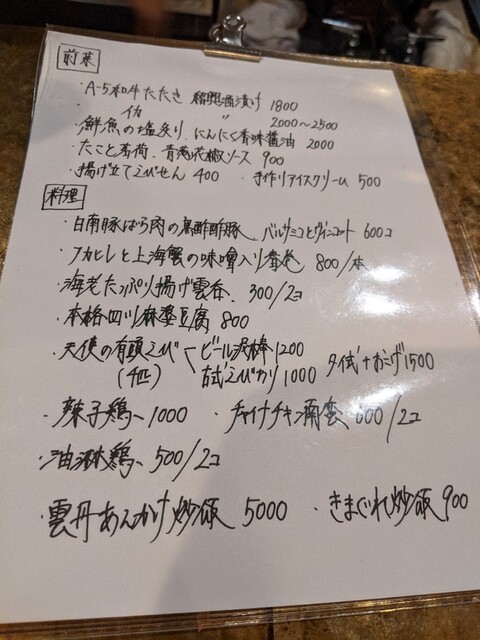 前菜
・A-5和牛たたき 紹興酒漬け 1800
イカ 〃 2000〜2500
・鮮魚の塩炙り、にんにく香味醤油 2000
・たこと茗荷、青葱花椒ソース 900
・揚げ立てえびせん 400 ・手作りアイスクリーム 500
料理
・白南豚ばら肉の黒酢酢豚 バルサミコとヴィンコット 600コ
・フカヒレと上海蟹の味噌入り春巻 800/本
・海老たっぷり揚げ雲呑、300/2コ
・本格四川麻婆豆腐 800
・天使の有頭えび ビール泥棒 1200
(4匹) 古式えびカリ 1000 タイ式+おこげ 1500
・辣子鶏 1000 ・チャイナチキン南蛮 600/2コ
・油淋鶏 500/2コ
・雲丹あんかけ炒飯 5000 ・きまぐれ炒飯 900